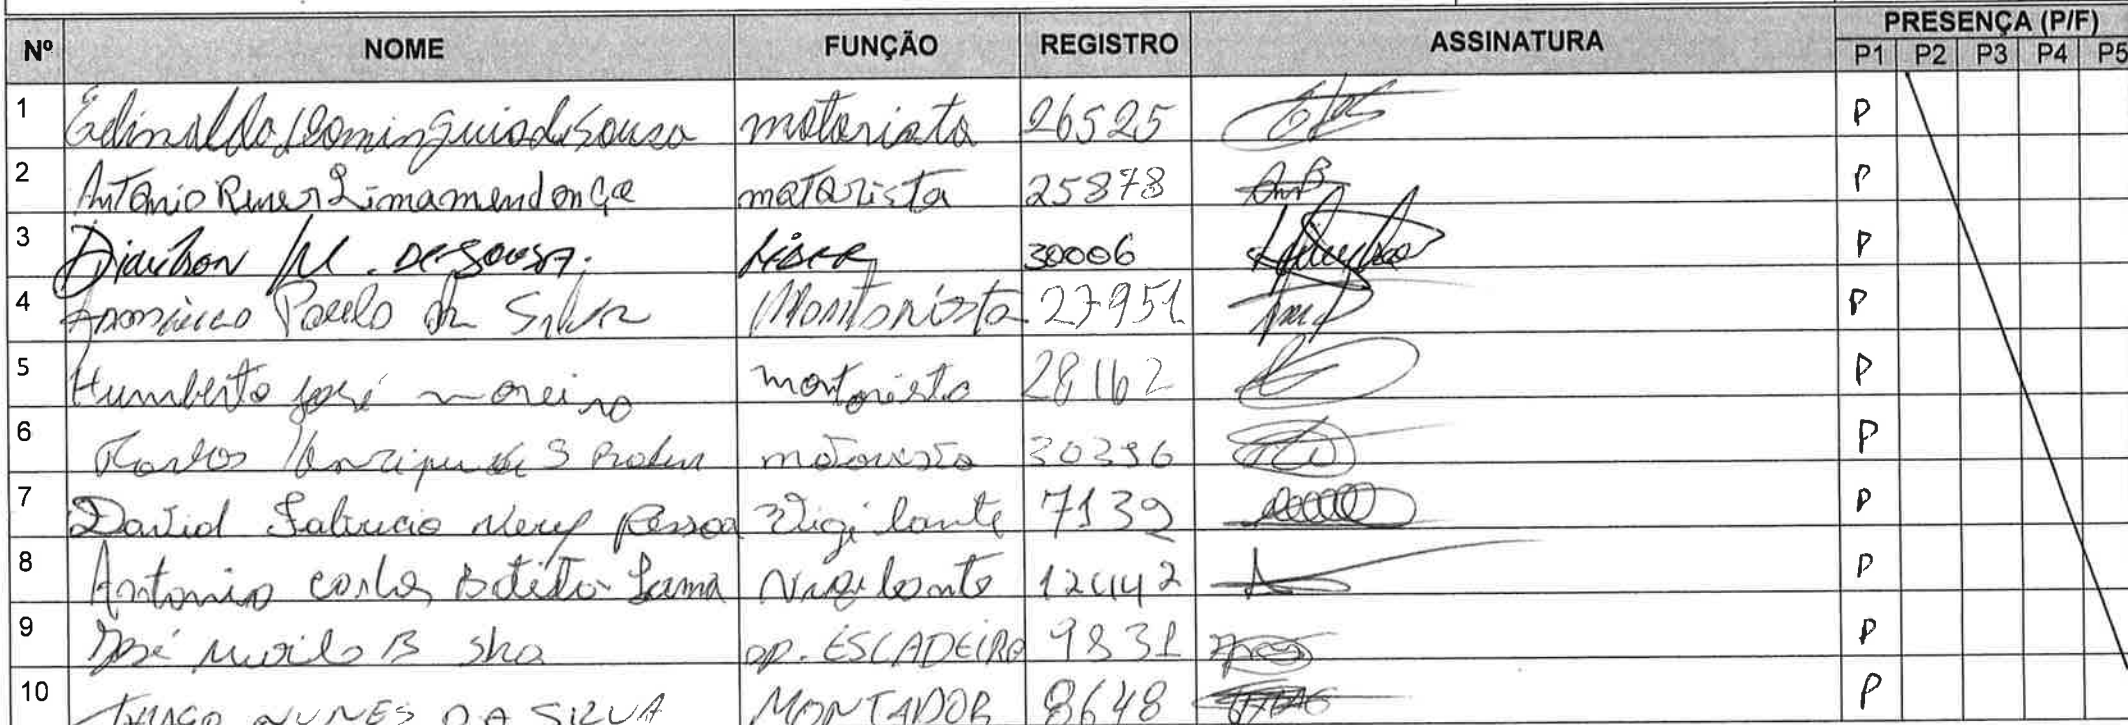 Nº NOME FUNÇÃO REGISTRO ASSINATURA PRESENÇA (P/F)
P1 P2 P3 P4 P5
1 Edinaldo Dominguis de Sousa motorista 26525 P
2 Antonio Rener Lima mendonça motorista 25878 P
3 M. DE SOUSA. LiDER 30006 P
4 Paulo da Silva 27951 P
5 Humberto José moreira montorista 28162 P
6 Henrique de S motorista 30396 P
7 David Fabricio Nery Pessoa Vigilante 7139 P
8 Antonio Carlos Batista Lama Vigilante 12442 P
9 José Murilo B op. ESCADEIRA 9831 P
10 THIAGO NUNES DA SILVA MONTADOR 8648 P